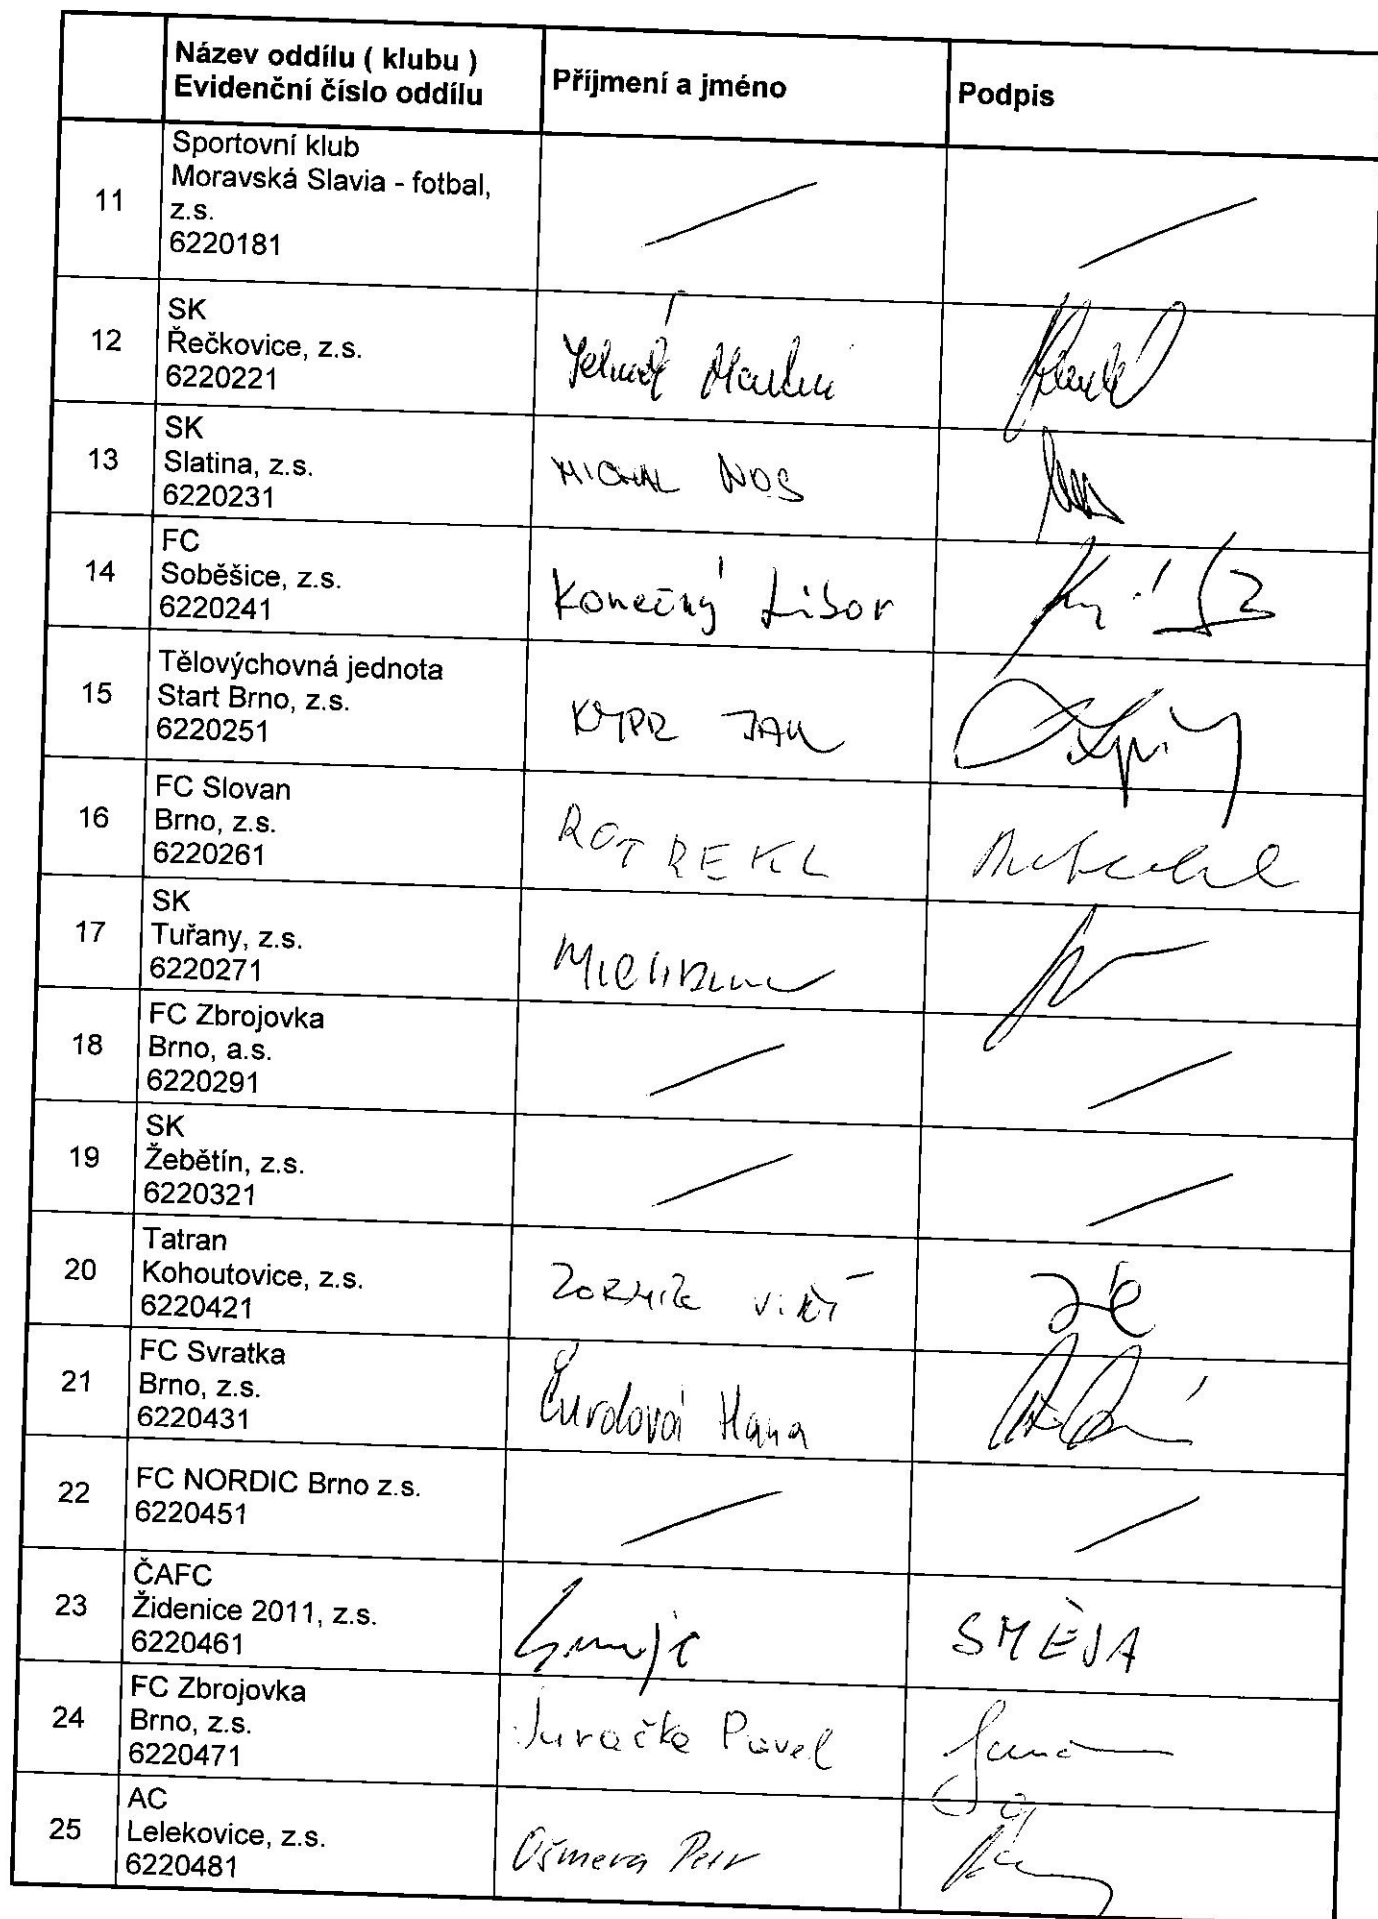 Název oddílu ( klubu )
Evidenční číslo oddílu
Příjmení a jméno
Podpis
11
Sportovní klub
Moravská Slavia - fotbal,
z.s.
6220181
12
SK
Řečkovice, z.s.
6220221
13
SK
Slatina, z.s.
6220231
MICHAL NOS
14
FC
Soběšice, z.s.
6220241
Konečný Libor
15
Tělovýchovná jednota
Start Brno, z.s.
6220251
KYPR JAN
16
FC Slovan
Brno, z.s.
6220261
ROTREKL
17
SK
Tuřany, z.s.
6220271
18
FC Zbrojovka
Brno, a.s.
6220291
19
SK
Žebětín, z.s.
6220321
20
Tatran
Kohoutovice, z.s.
6220421
21
FC Svratka
Brno, z.s.
6220431
Čurdová Hana
22
FC NORDIC Brno z.s.
6220451
23
ČAFC
Židenice 2011, z.s.
6220461
SMĚJA
24
FC Zbrojovka
Brno, z.s.
6220471
Juračka Pavel
25
AC
Lelekovice, z.s.
6220481
Ošmera Petr